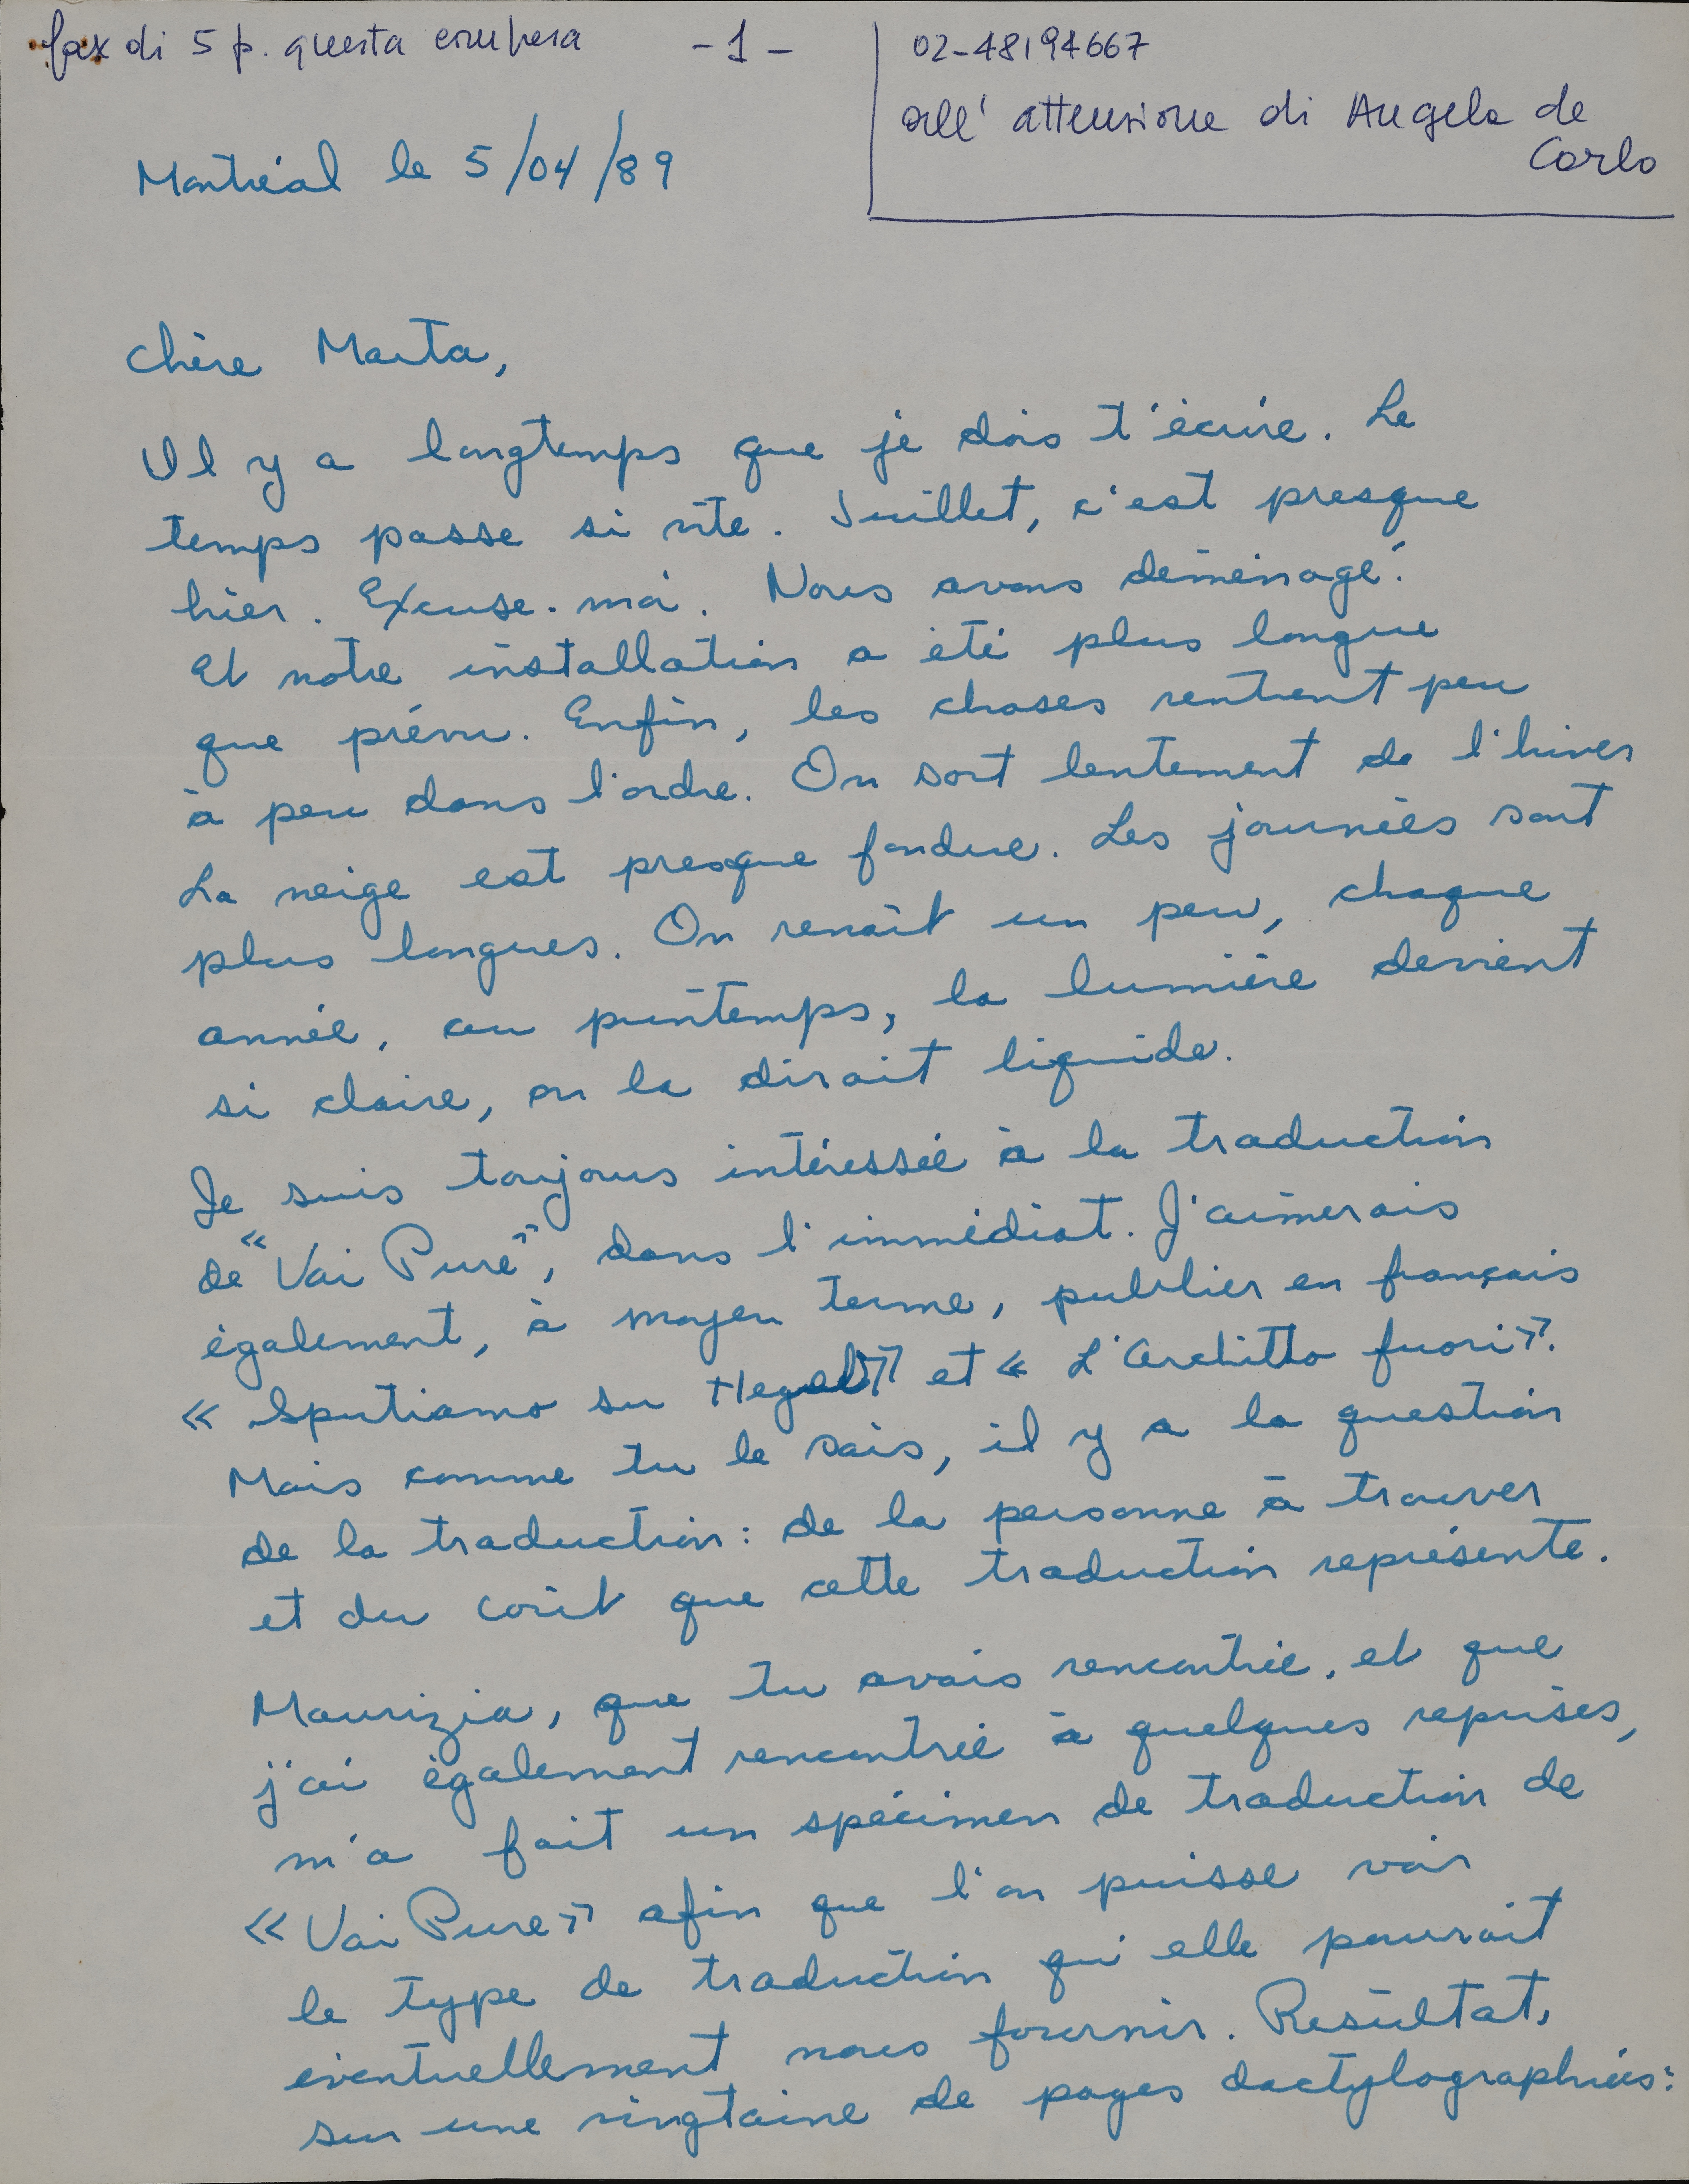 fax di 5 p. questa compresa
- 1 -
02-48194667
all' attenzione di Angela de
Carlo
Montréal le 5/04/89
Chère Marta,
Il y a longtemps que je dois t'écrire. Le
temps passe si vite. Juillet, c'est presque
hier. Excuse-moi. Nous avons déménagé.
Et notre installation a été plus longue
que prévu. Enfin, les choses rentrent peu
à peu dans l'ordre. On sort lentement de l'hiver
La neige est presque fondue. Les journées sont
plus longues. On renaît un peu, chaque
année, au printemps, la lumière devient
si claire, on la dirait liquide.
Je suis toujours intéressée à la traduction
de «Vai Pure», dans l'immédiat. J'aimerais
également, à moyen terme, publier en français
« Sputiamo su Hegel» et « L'Architto fuori».
Mais comme tu le sais, il y a la question
de la traduction: de la personne à trouver
et du coût que cette traduction représente.
Maurizia, que tu avais rencontrée, et que
j'ai également rencontrée à quelques reprises,
m'a fait un spécimen de traduction de
«Vai Pure» afin que l'on puisse voir
le type de traduction qu'elle pourrait
éventuellement nous fournir. Résultat,
sur une vingtaine de pages dactylographiées: